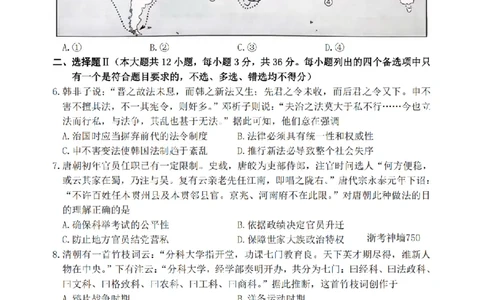 ④
A.① B.② C.③ D.④
二、选择题Ⅱ（本大题共12小题，每小题3分，共36分。每小题列出的四个备选项中只
有一个是符合题目要求的，不选、多选、错选均不得分）
6.韩非子说：“晋之故法未息，而韩之新法又生；先君之令未收，而后君之令又下。申不
害不擅其法，不一其宪令，则奸多。”邓析子则说：“夫治之法莫大于私不行……今也立
法而行私，与法争，其乱也甚于无法。”据此可知，他们意在强调
A.治国时应当摒弃前代的法令制度 B.法律必须具有统一性和权威性
C.申不害变法使韩国法制趋于紊乱 D.推行新法必导致整个社会失序
7.唐朝初年官员任职已有一定限制。史载，唐皎为吏部侍郎，注官时问选人“何方便稳，
或云其家在蜀，乃注与吴。复有云亲老先任江南，即唱之陇右。”唐代宗永泰元年下诏：
“不许百姓任本贯州县及本贯邻县官。京兆、河南府不在此限。”对唐朝此种做法的目
的理解正确的是
A.确保科举考试的公平性 B.依据政绩决定官员升迁
C.防止地方官员结党营私 D.保障世家大族政治特权
浙考神墙750
8.清朝有一首竹枝词云：“分科大学指开堂，功课七门教育良。天下英才期尽得，维新人
物在中央。”下有注云：“分科大学，经学部奏明开办，共分为七门：曰经科、曰法政科、
曰文科、曰格致科、曰农科、曰工科、曰商科。”据此推断，这首竹枝词创作于
A.鸦片战争时期 B.洋务运动时期